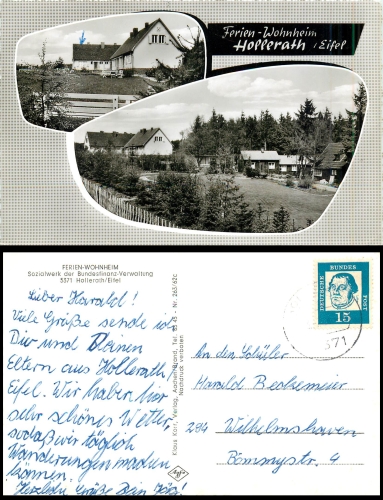 Ferien-Wohnheim
Hollerath / Eifel
FERIEN-WOHNHEIM
Sozialwerk der Bundesfinanz-Verwaltung
5571 Hollerath/Eifel
Lieber Harald!
Viele Grüße sende ich
Dir und Deinen
Eltern aus Hollerath,
Eifel. Wir haben hier
sehr schönes Wetter,
sodaß wir täglich
Wanderungen machen
können.
Herzliche Grüße Dein
Klaus Korr, Verlag, Aachen-Brand, Tel. Nr. 265/62c
Nachdruck verboten
Agfa
DEUTSCHE BUNDESPOST
15
571
An den Schüler
Harald Beckemeier
294 Wilhelmshaven
Bömmystr. 4